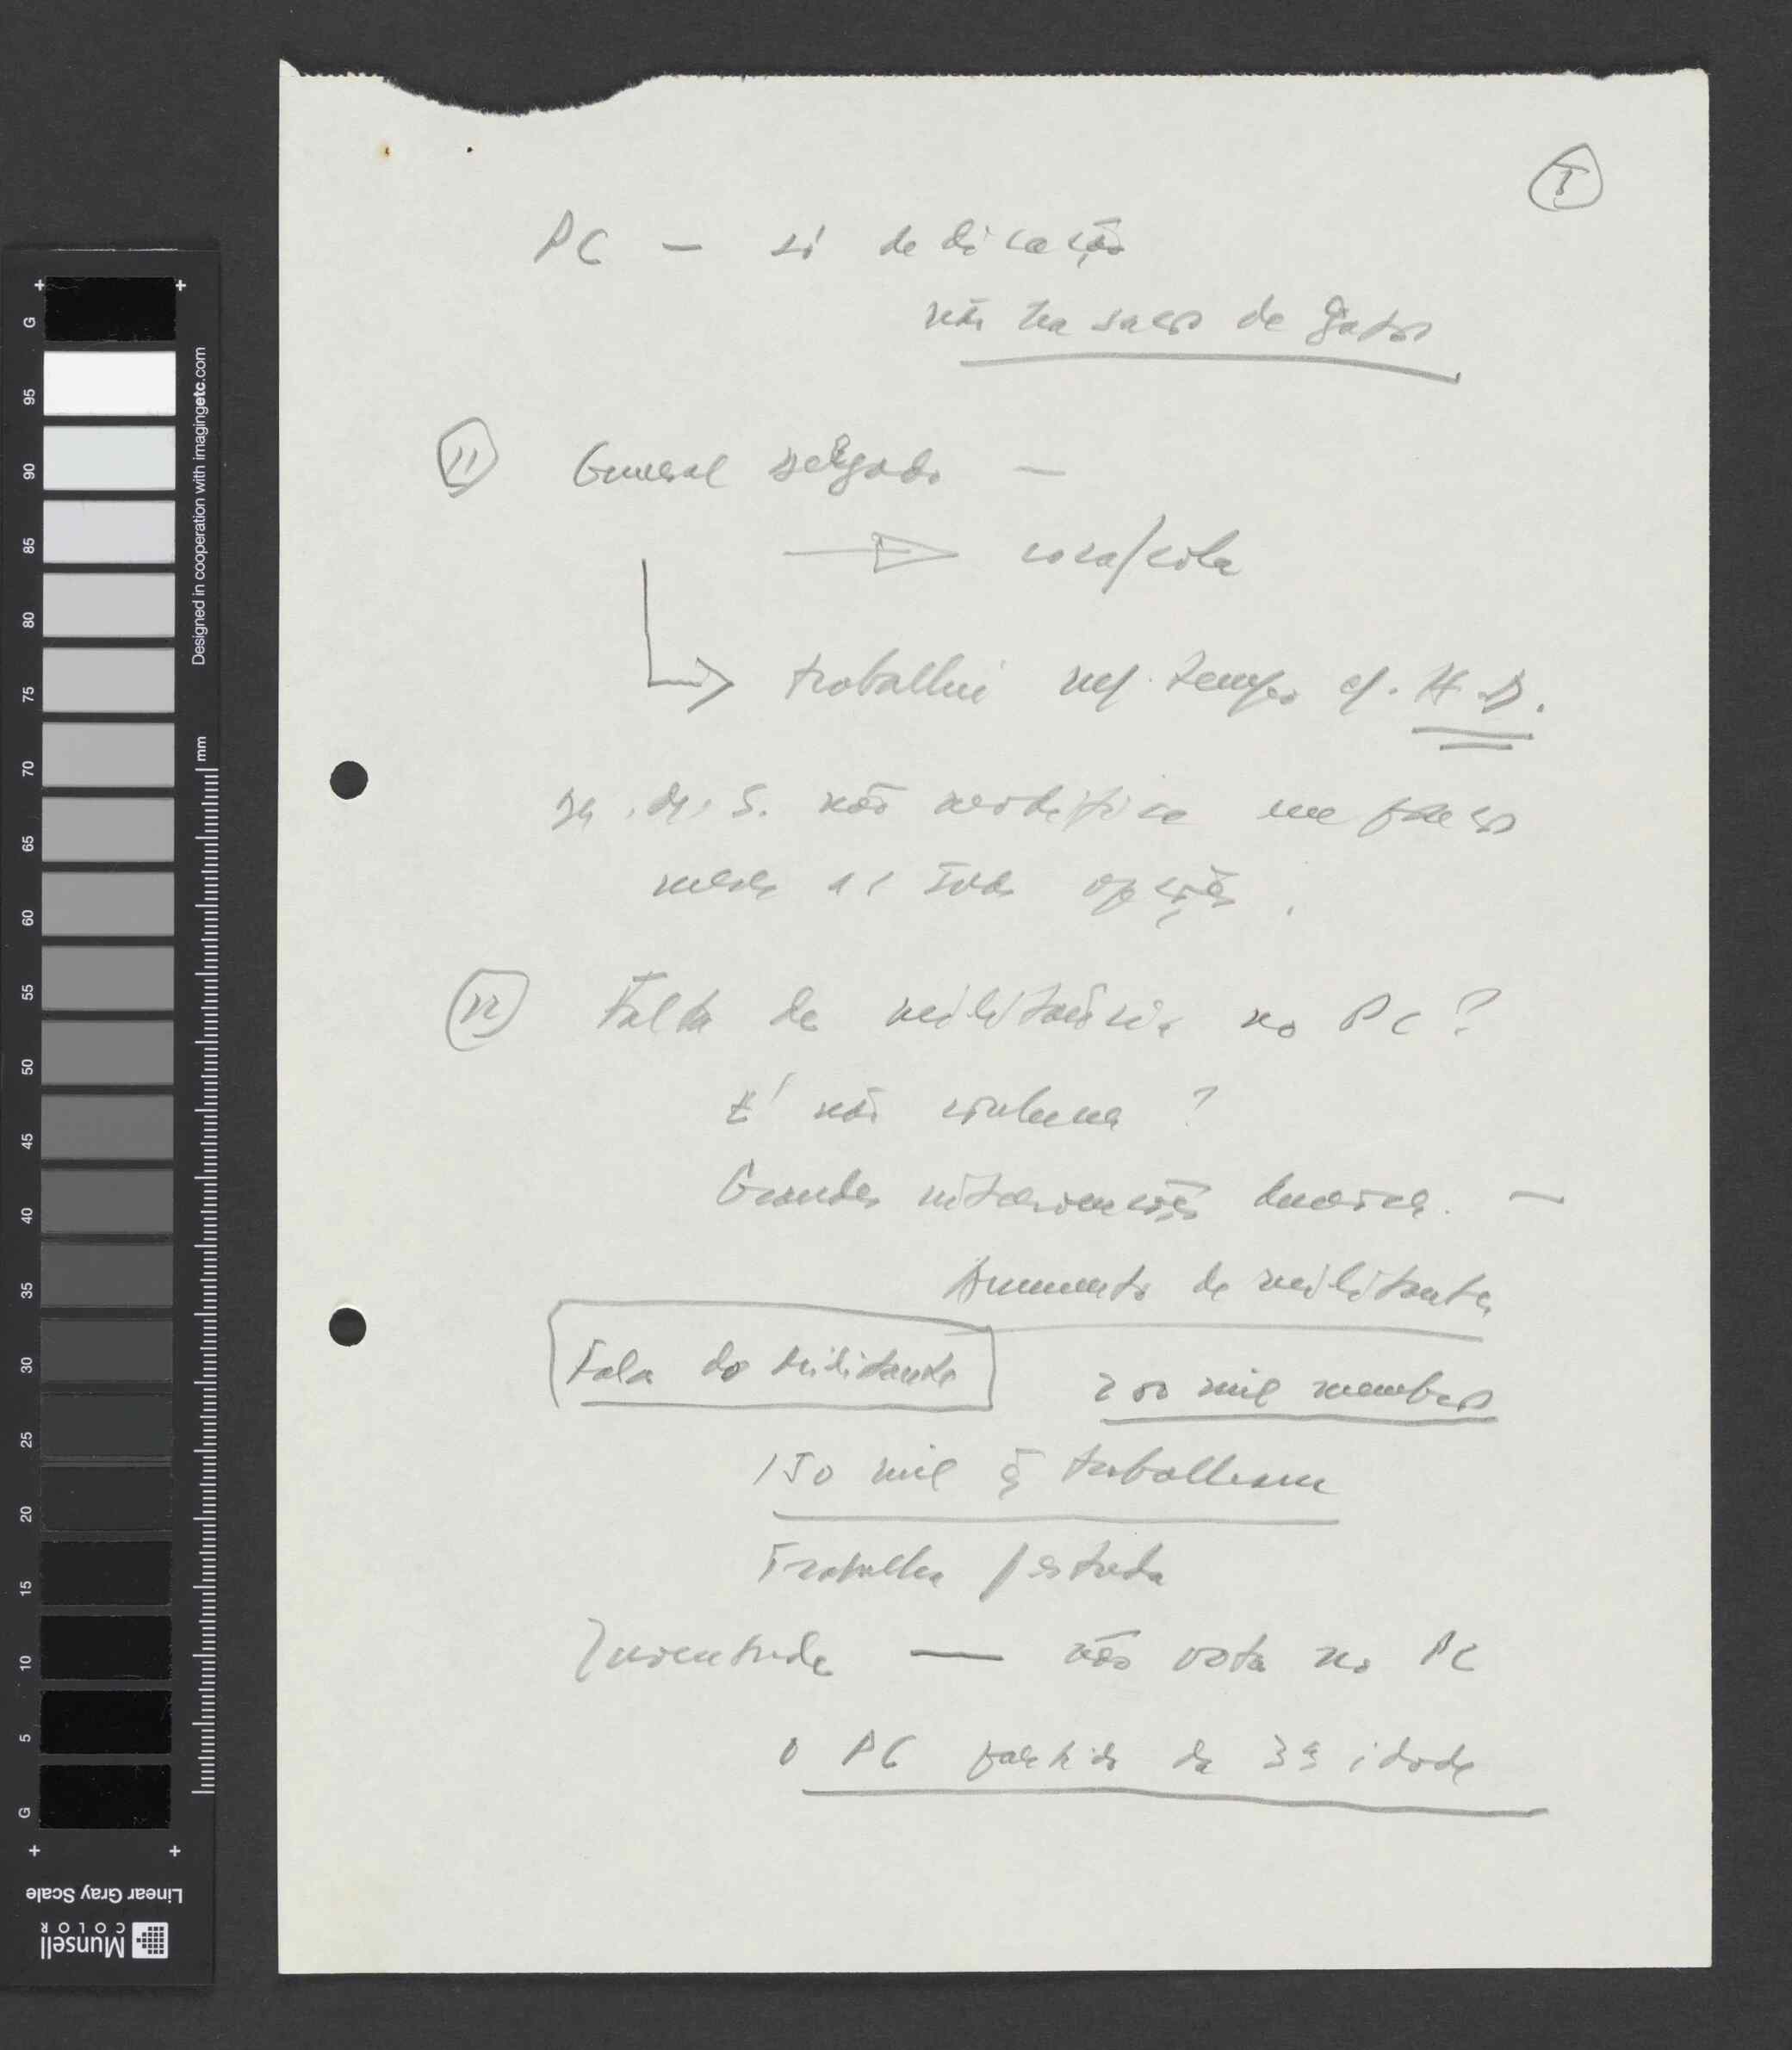 5
PC — só dedicação
não há sacos de gatos
11 General Delgado —
coca/cola
trabalhei m/ tempo c/. H.D.
não modifica um passo
nas suas opções.
12 Falta de militância no PC?
É não coluna?
Grandes intervenções —
Aumento de militantes
Fala do militante
200 mil membros
150 mil q̃ trabalham
Trabalha /
Juventude — não vota no PC
O PC partido da 3ª idade
G 95 90 85 80 75 70 65 60 55 50 45 40 35 30 25 20 15 10 5 G
mm
Designed in cooperation with imagingetc.com
Linear Gray Scale
Munsell
COLOR